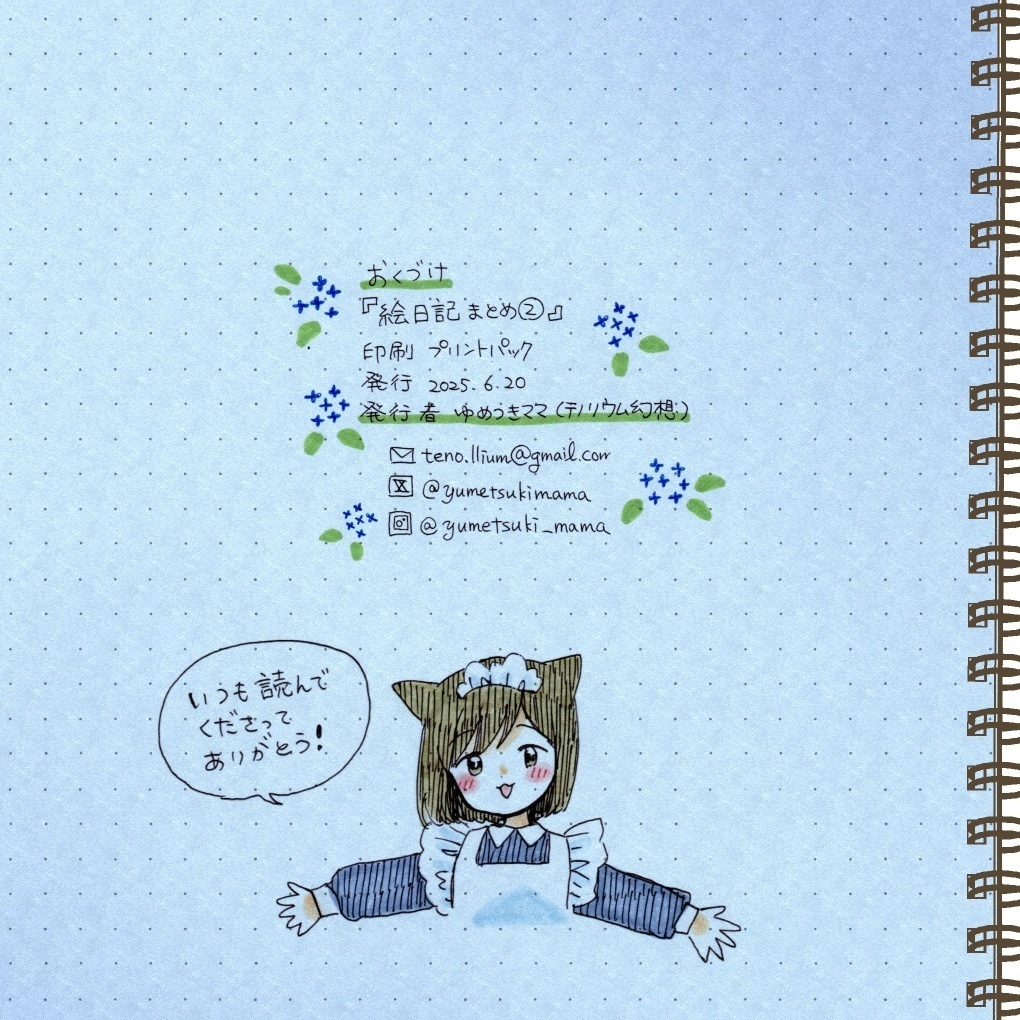 おくづけ
『絵日記まとめ②』
印刷 プリントパック
発行 2025.6.20
発行者 ゆめつきママ(テノリウム幻想)
teno.llium@gmail.com
@yumetsukimama
@yumetsuki_mama
いつも読んで
くださって
ありがとう!